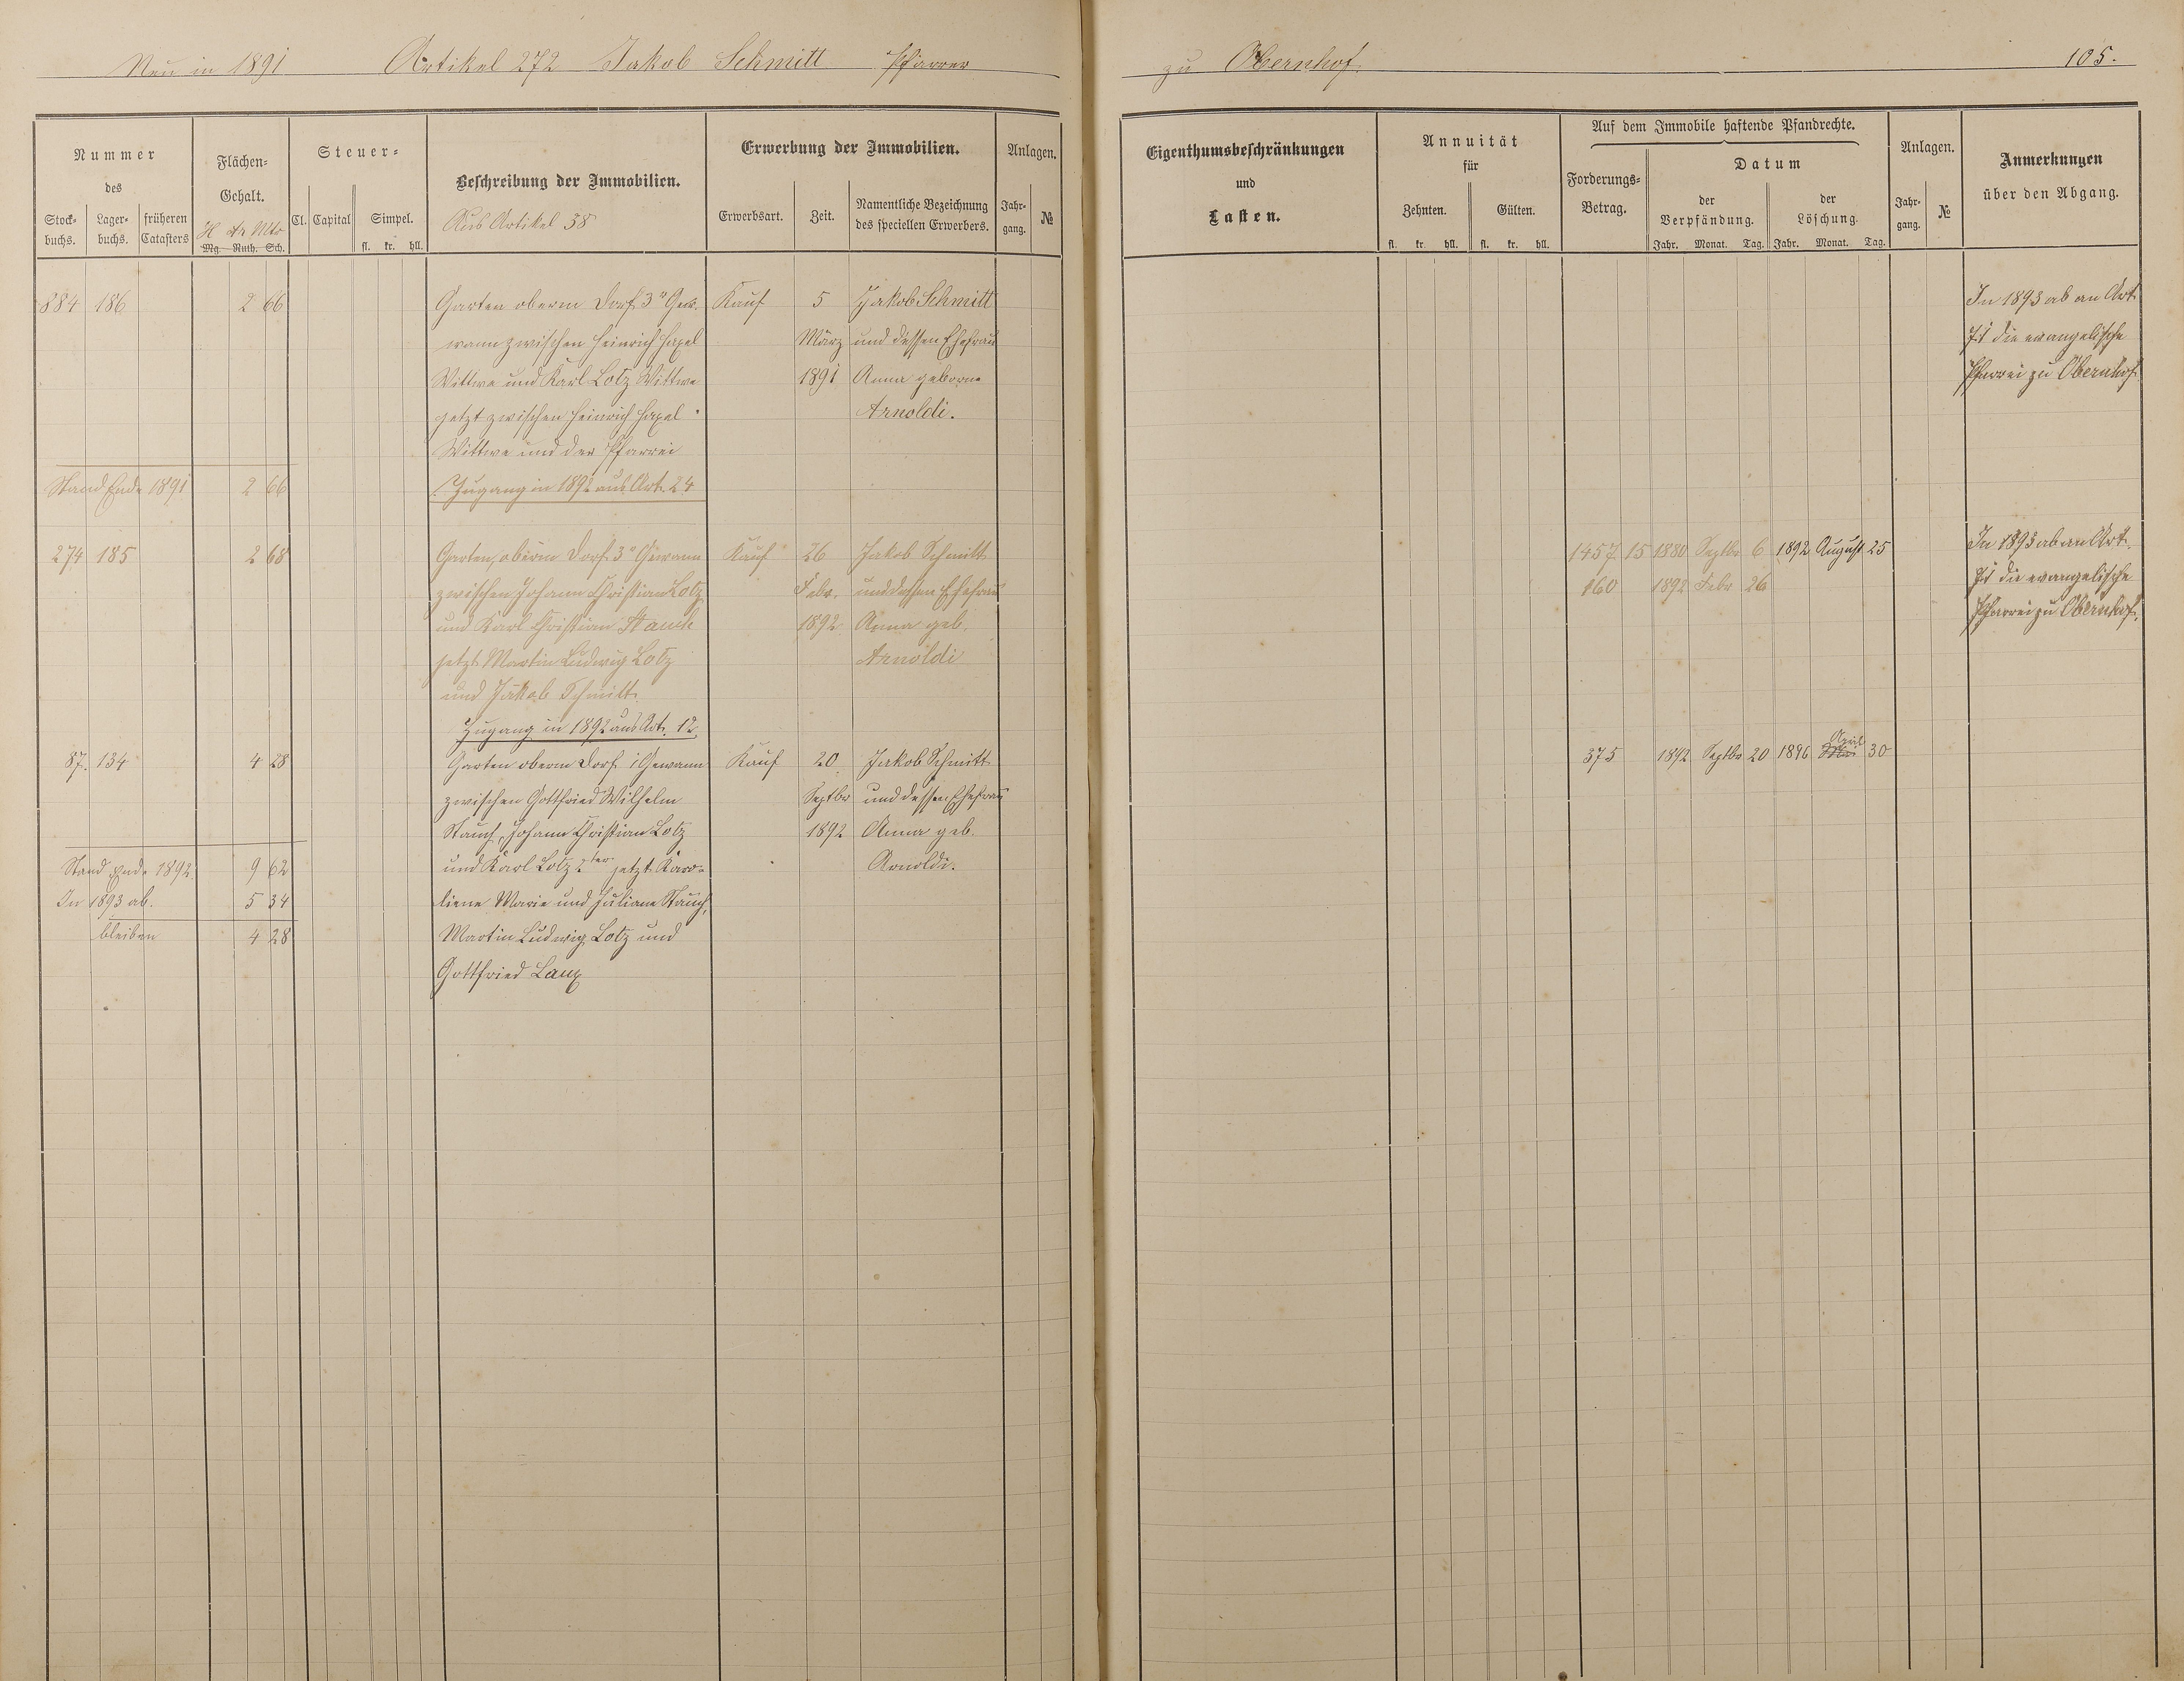 Neu in 1891 Artikel 272 Jakob Schmitt Pfarrer
Nummer
des
Stock-
buchs.
Lager-
buchs.
früheren
Catasters
Flächen-
Gehalt.
H Ar Mtr
Mg. Ruth. Sch.
Steuer-
Cl. Capital Simpel.
fl. kr. hll.
Beschreibung der Immobilien.
Aus Artikel 38
Erwerbung der Immobilien.
Erwerbsart. Zeit.
Namentliche Bezeichnung
des speciellen Erwerbers.
Anlagen.
Jahr-
gang.
№
884 186 2 66
Garten oberm Dorf 3r Ge-
wann zwischen Heinrich Hazel
Wittwe und Karl Lotz Wittwe
jetzt zwischen Heinrich Hazel
Wittwe und der Pfarrei
Kauf
5
März
1891
Jakob Schmitt
und dessen Ehefrau
Anna geborne
Arnoldi.
Stand Ende 1891 2 66
Zugang in 1892 aus Art. 24
274 185 2 68
Garten, oberm Dorf 3r Gewann
zwischen Johann Christian Lotz
und Karl Christian Stauch
jetzt Martin Ludwig Lotz
und Jakob Schmitt
Kauf
26
Febr.
1892
Jakob Schmitt
und dessen Ehefrau
Anna geb.
Arnoldi
Zugang in 1892 aus Art. 12.
87. 134 4 28
Garten oberm Dorf 1 Gewann
zwischen Gottfried Wilhelm
Stauch, Johann Christian Lotz
und Karl Lotz 2ter jetzt Karo-
liene Marie und Juliane Stauch,
Martin Ludwig Lotz und
Gottfried Laux
Kauf
20.
Septbr
1892
Jakob Schmitt
und dessen Ehefrau
Anna geb.
Arnoldi.
Stand Ende 1892. 9 62
In 1893 ab. 5 34
bleiben 4 28
zu Obernhof. 105.
Eigenthumsbeschränkungen
und
Lasten.
Annuität
für
Zehnten. Gülten.
fl. kr. hll. fl. kr. hll.
Auf dem Immobile haftende Pfandrechte.
Forderungs-
Betrag.
Datum
der
Verpfändung.
Jahr. Monat. Tag.
der
Löschung.
Jahr. Monat. Tag.
Anlagen.
Jahr-
gang.
№
Anmerkungen
über den Abgang.
In 1893 ab an Art.
die evangelische
Pfarrei zu Obernhof
1457 15 1880 Septbr 6 1892 August 25
160 1892 Febr 26
In 1893 ab an Art.
die evangelische
Pfarrei zu Obernhof.
375 1892 Septbr 20 1896 Mai April 30